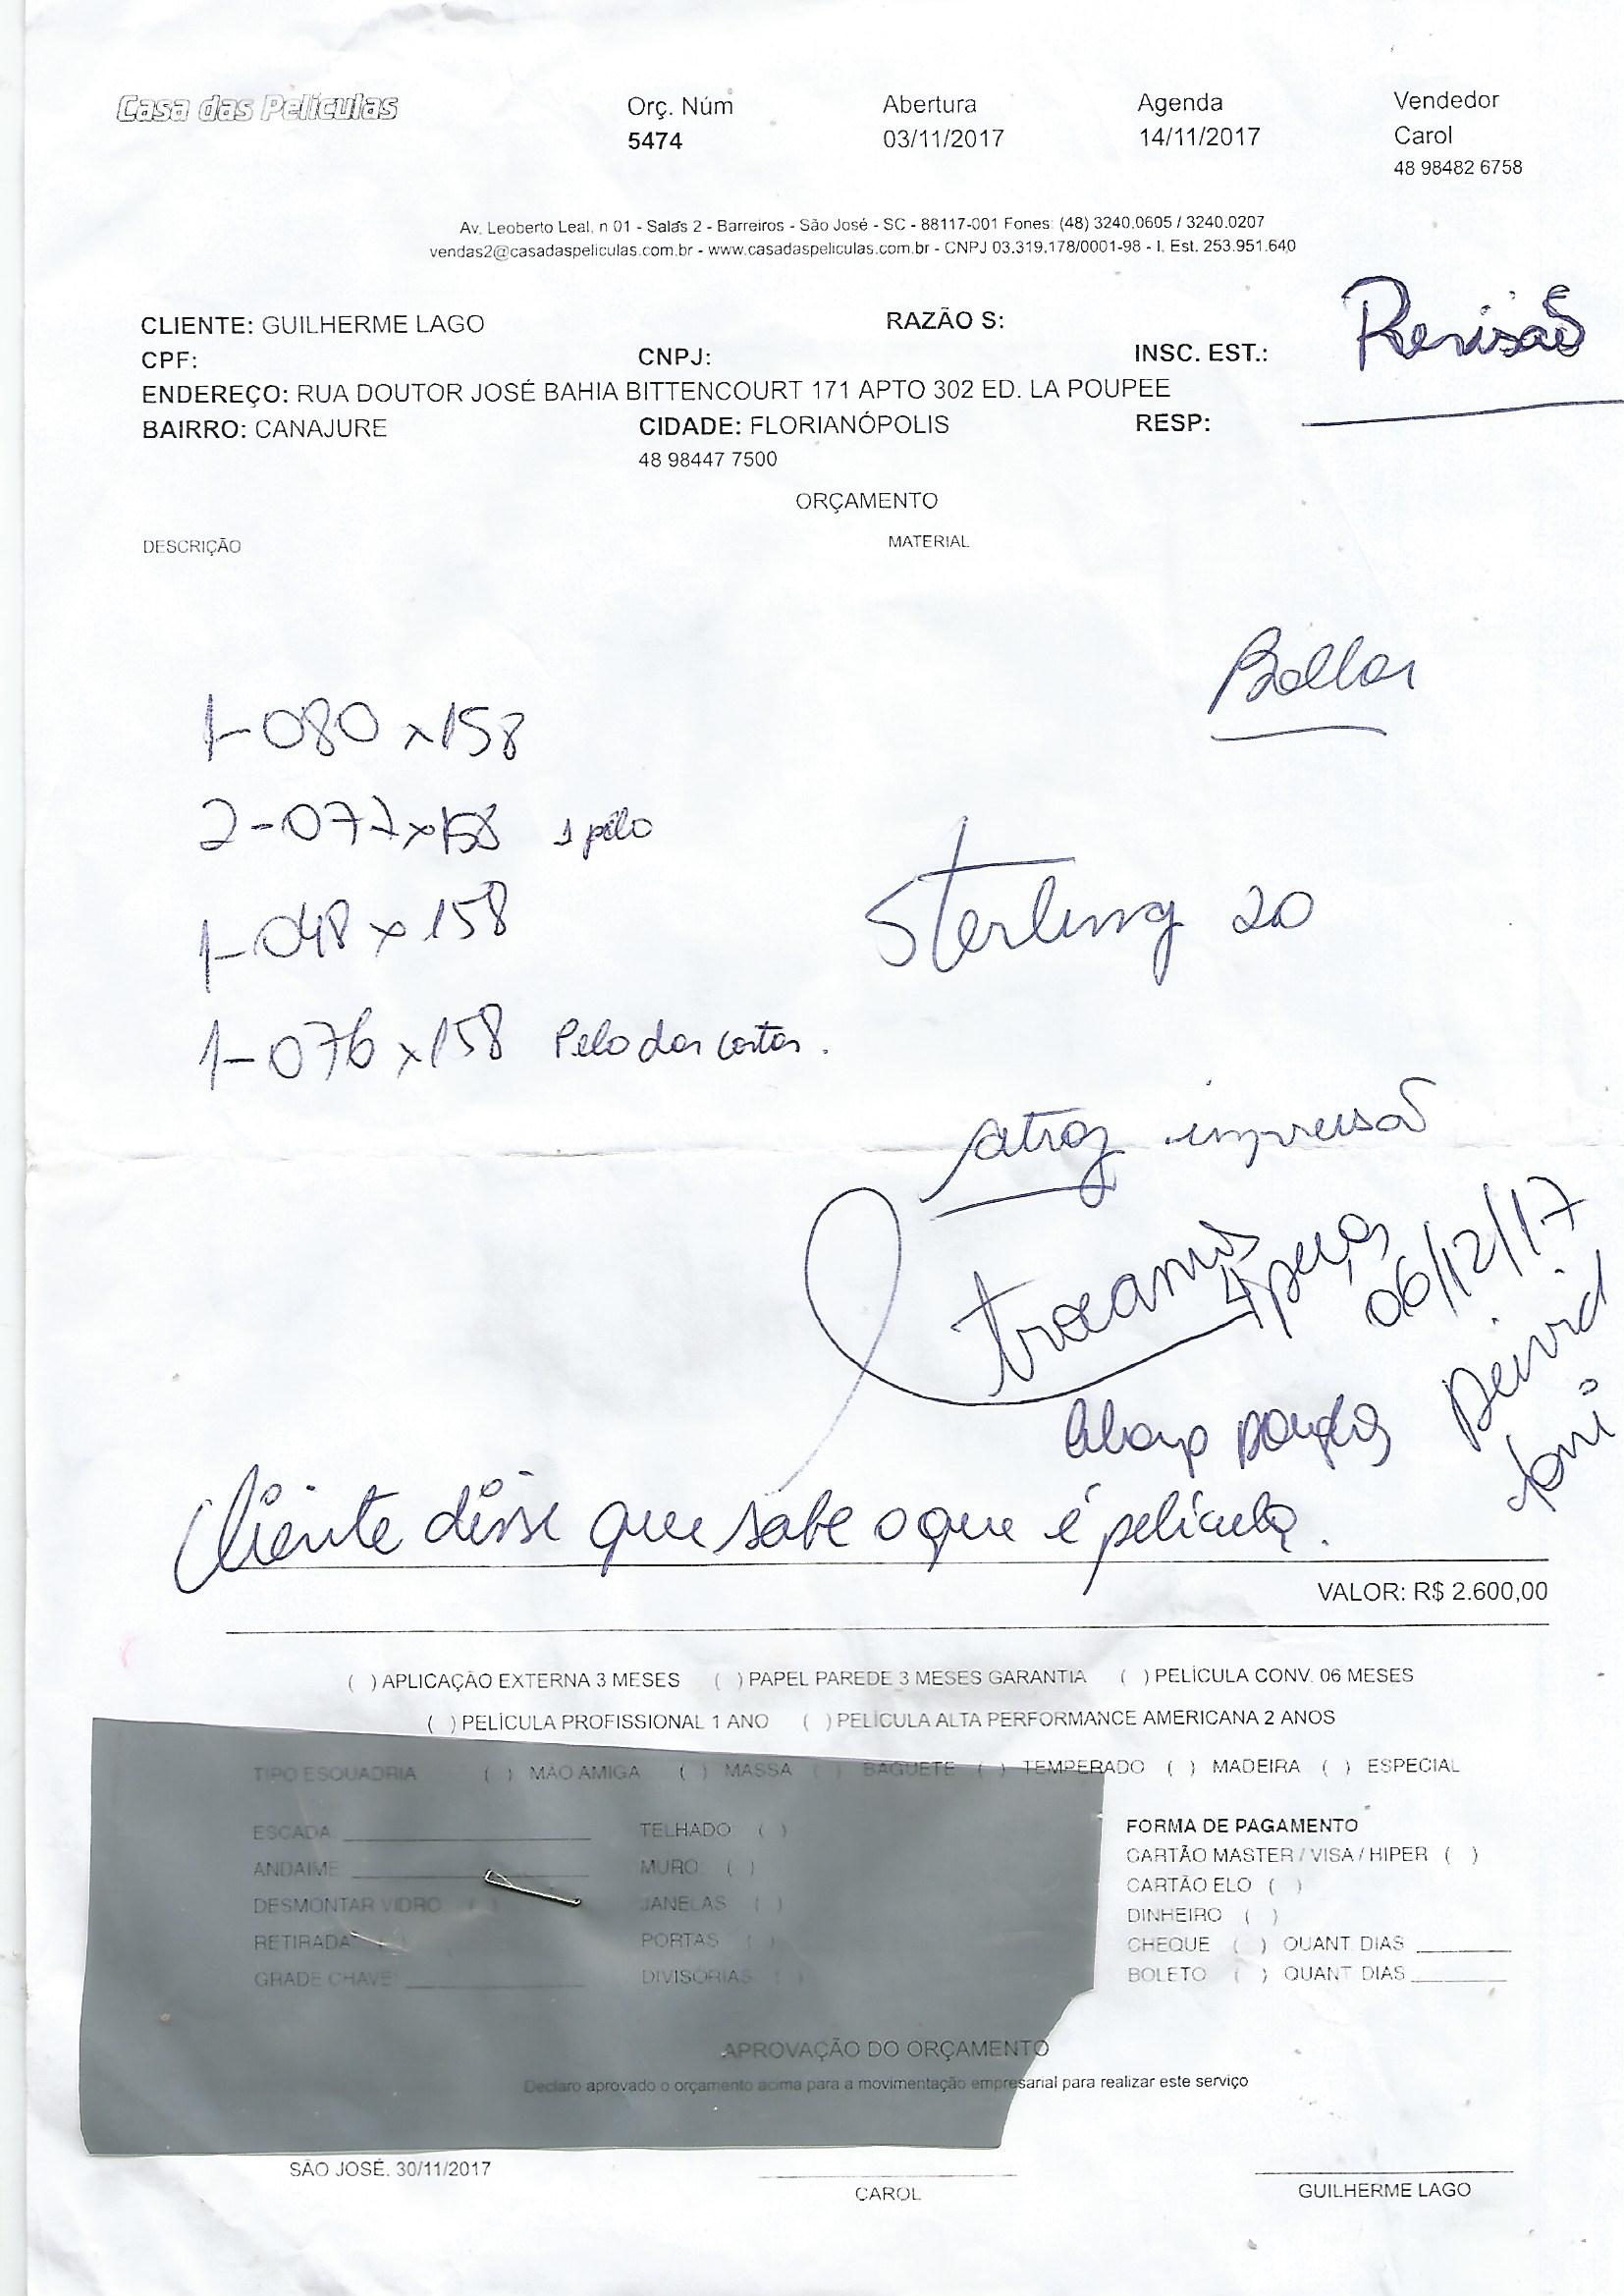 Casa das Películas
Orç. Núm Abertura Agenda Vendedor
5474 03/11/2017 14/11/2017 Carol
48 98482 6758
Av. Leoberto Leal, n 01 - Salas 2 - Barreiros - São José - SC - 88117-001 Fones: (48) 3240.0605 / 3240.0207
vendas2@casadaspeliculas.com.br - www.casadaspeliculas.com.br - CNPJ 03.319.178/0001-98 - I. Est. 253.951.640
Revisão
CLIENTE: GUILHERME LAGO RAZÃO S:
CPF: CNPJ: INSC. EST.:
ENDEREÇO: RUA DOUTOR JOSÉ BAHIA BITTENCOURT 171 APTO 302 ED. LA POUPEE
BAIRRO: CANAJURE CIDADE: FLORIANÓPOLIS RESP:
48 98447 7500
ORÇAMENTO
DESCRIÇÃO MATERIAL
1-080 x 158
2-077 x 158 1 pelo
Sterling 20
1-048 x 158
1-076 x 158 Pelo das costas.
atraz impressão
trocamos 4 peças 06/12/17
Cliente disse que sabe o que é película.
VALOR: R$ 2.600,00
( ) APLICAÇÃO EXTERNA 3 MESES ( ) PAPEL PAREDE 3 MESES GARANTIA ( ) PELÍCULA CONV. 06 MESES
( ) PELÍCULA PROFISSIONAL 1 ANO ( ) PELICULA ALTA PERFORMANCE AMERICANA 2 ANOS
TIPO ESQUADRIA ( ) MÃO AMIGA ( ) MASSA ( ) BAGUETE ( ) TEMPERADO ( ) MADEIRA ( ) ESPECIAL
ESCADA TELHADO ( ) FORMA DE PAGAMENTO
ANDAIME MURO ( ) CARTÃO MASTER / VISA / HIPER ( )
DESMONTAR VIDRO ( ) JANELAS ( ) CARTÃO ELO ( )
DINHEIRO ( )
RETIRADA PORTAS ( ) CHEQUE ( ) QUANT DIAS
GRADE CHAVE DIVISÓRIAS ( ) BOLETO ( ) QUANT DIAS
APROVAÇÃO DO ORÇAMENTO
Declaro aprovado o orçamento acima para a movimentação empresarial para realizar este serviço
SÃO JOSÉ. 30/11/2017
CAROL GUILHERME LAGO